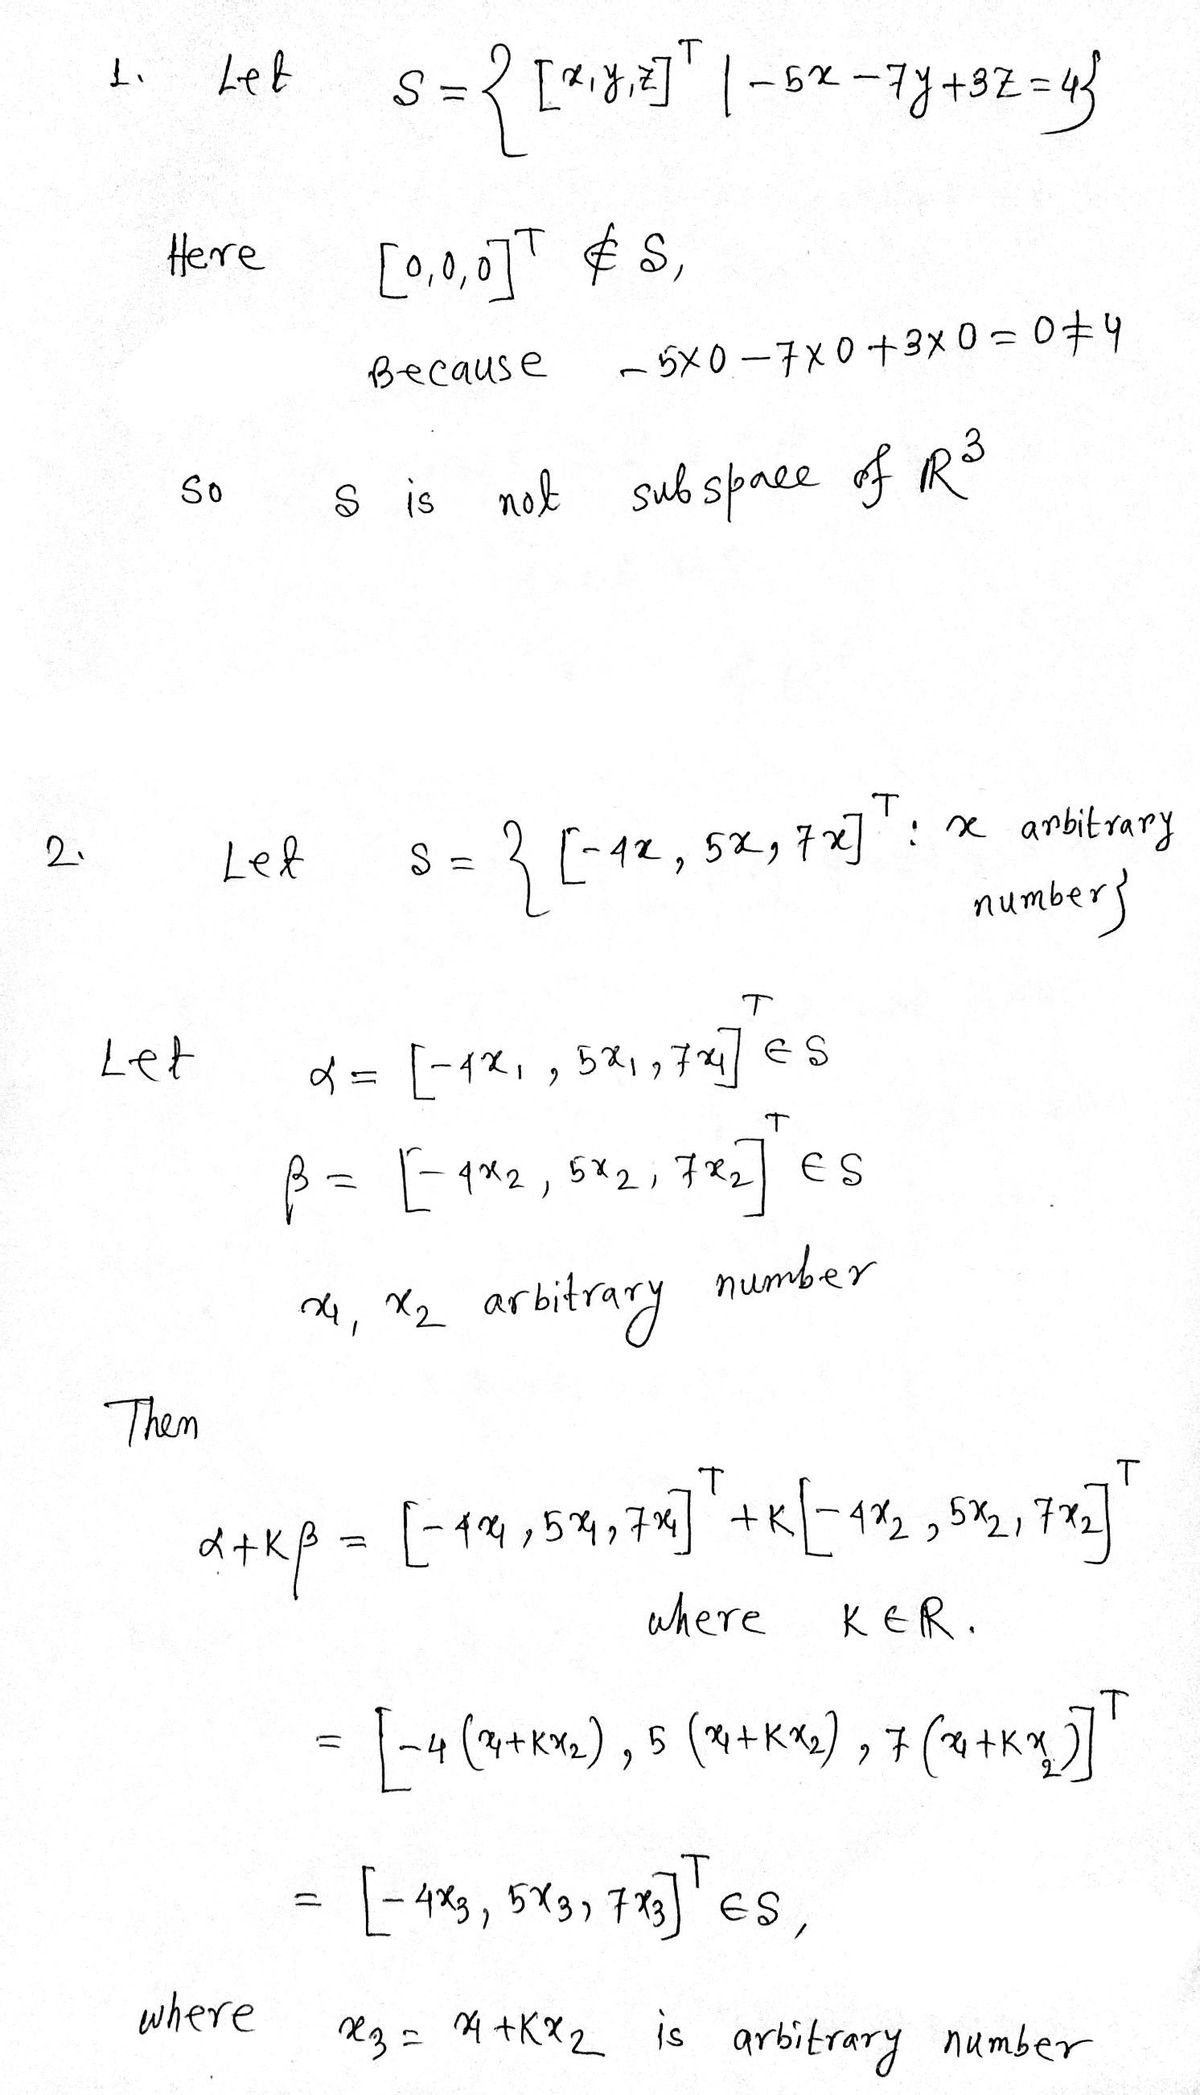 1. Let S = { [x, y, z]ᵀ | -5x - 7y + 3z = 4}
Here [0, 0, 0]ᵀ ∉ S,
Because -5×0 - 7×0 + 3×0 = 0 ≠ 4
So S is not subspace of ℝ³
2. Let S = { [-4x, 5x, 7x]ᵀ : x arbitrary
number}
Let α = [-4x₁, 5x₁, 7x₁]ᵀ ∈ S
β = [-4x₂, 5x₂, 7x₂]ᵀ ∈ S
x₁, x₂ arbitrary number
Then
α + Kβ = [-4x₁, 5x₁, 7x₁]ᵀ + K[-4x₂, 5x₂, 7x₂]ᵀ
where K ∈ ℝ.
= [-4(x₁+Kx₂), 5(x₁+Kx₂), 7(x₁+Kx₂)]ᵀ
= [-4x₃, 5x₃, 7x₃]ᵀ ∈ S,
where x₃ = x₁ + Kx₂ is arbitrary number